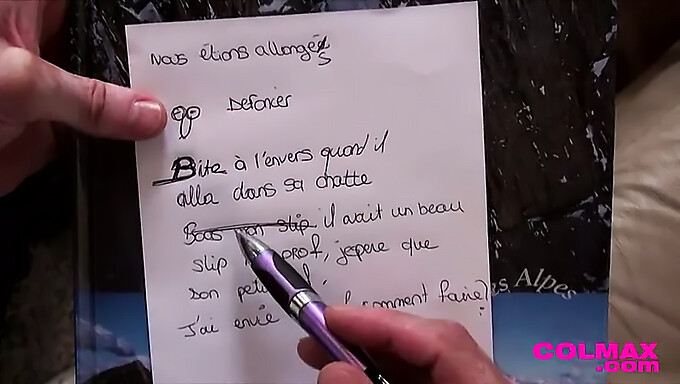 Nous étions allongés
DéFoncer
Bite à l'envers quand il
alla dans sa chatte
slip il avait un beau
slip prof, j'epere que
son
J'ai envie comment faire?
es Alpes
COLMAX
.com